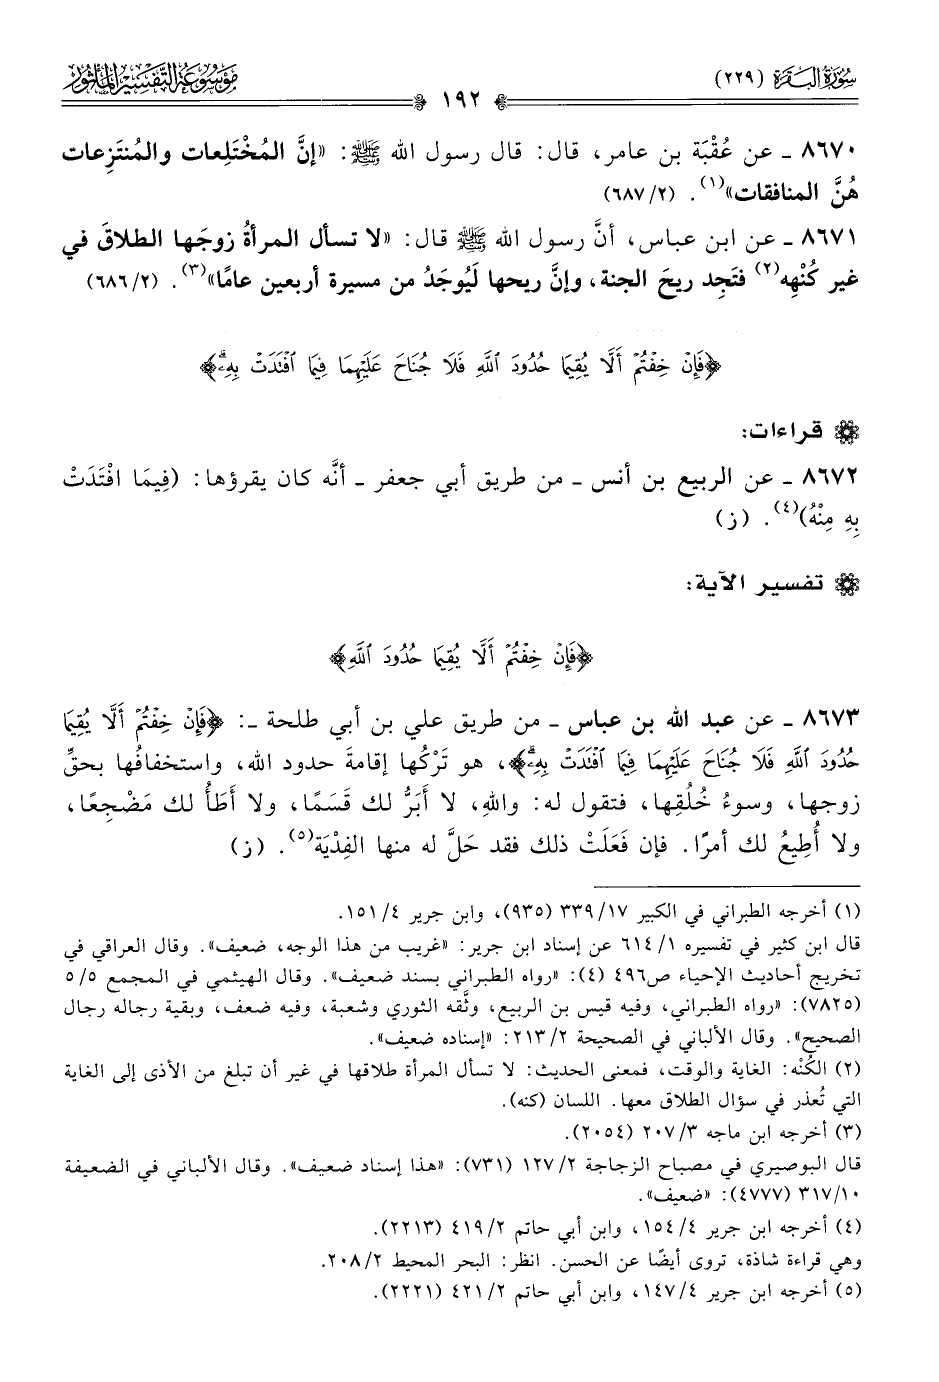 سُورَةُ البَقَرَة (٢٢٩)
مَوْسُوعَةُ التَّفْسِيْرِ المَأْثُور
١٩٢
٨٦٧٠ ـ عن عُقْبَة بن عامر، قال: قال رسول الله ﷺ: «إنَّ المُخْتَلِعات والمُنتَزِعات
هُنَّ المنافقات»(١). (٦٨٧/٢)
٨٦٧١ ـ عن ابن عباس، أنَّ رسول الله ﷺ قال: «لا تسأل المرأةُ زوجَها الطلاقَ في
غير كُنْهِه(٢) فتَجِد ريحَ الجنة، وإنَّ ريحها لَيُوجَدُ من مسيرة أربعين عامًا»(٣). (٦٨٦/٢)
﴿فَإِنْ خِفْتُمْ أَلَّا يُقِيمَا حُدُودَ ٱللَّهِ فَلَا جُنَاحَ عَلَيْهِمَا فِيمَا ٱفْتَدَتْ بِهِۦۗ﴾
قراءات:
٨٦٧٢ ـ عن الربيع بن أنس ـ من طريق أبي جعفر ـ أنَّه كان يقرؤها: (فِيمَا افْتَدَتْ
بِهِ مِنْهُ)(٤). (ز)
تفسير الآية:
﴿فَإِنْ خِفْتُمْ أَلَّا يُقِيمَا حُدُودَ ٱللَّهِ﴾
٨٦٧٣ ـ عن عبد الله بن عباس ـ من طريق علي بن أبي طلحة ـ: ﴿فَإِنْ خِفْتُمْ أَلَّا يُقِيمَا
حُدُودَ ٱللَّهِ فَلَا جُنَاحَ عَلَيْهِمَا فِيمَا ٱفْتَدَتْ بِهِۦۗ﴾، هو تَرْكُها إقامةَ حدود الله، واستخفافُها بحقِّ
زوجها، وسوءُ خُلُقِها، فتقول له: واللهِ، لا أَبَرُّ لك قَسَمًا، ولا أَطَأُ لك مَضْجِعًا،
ولا أُطِيعُ لك أمرًا. فإن فَعَلَتْ ذلك فقد حَلَّ له منها الفِدْيَة(٥). (ز)
(١) أخرجه الطبراني في الكبير ٣٣٩/١٧ (٩٣٥)، وابن جرير ١٥١/٤.
قال ابن كثير في تفسيره ٦١٤/١ عن إسناد ابن جرير: «غريب من هذا الوجه، ضعيف». وقال العراقي في
تخريج أحاديث الإحياء ص٤٩٦ (٤): «رواه الطبراني بسند ضعيف». وقال الهيثمي في المجمع ٥/٥
(٧٨٢٥): «رواه الطبراني، وفيه قيس بن الربيع، وثَّقه الثوري وشعبة، وفيه ضعف، وبقية رجاله رجال
الصحيح». وقال الألباني في الصحيحة ٢١٣/٢: «إسناده ضعيف».
(٢) الكُنْه: الغاية والوقت، فمعنى الحديث: لا تسأل المرأة طلاقها في غير أن تبلغ من الأذى إلى الغاية
التي تُعذر في سؤال الطلاق معها. اللسان (كنه).
(٣) أخرجه ابن ماجه ٢٠٧/٣ (٢٠٥٤).
قال البوصيري في مصباح الزجاجة ١٢٧/٢ (٧٣١): «هذا إسناد ضعيف». وقال الألباني في الضعيفة
٣١٧/١٠ (٤٧٧٧): «ضعيف».
(٤) أخرجه ابن جرير ١٥٤/٤، وابن أبي حاتم ٤١٩/٢ (٢٢١٣).
وهي قراءة شاذة، تروى أيضًا عن الحسن. انظر: البحر المحيط ٢٠٨/٢.
(٥) أخرجه ابن جرير ١٤٧/٤، وابن أبي حاتم ٤٢١/٢ (٢٢٢١).